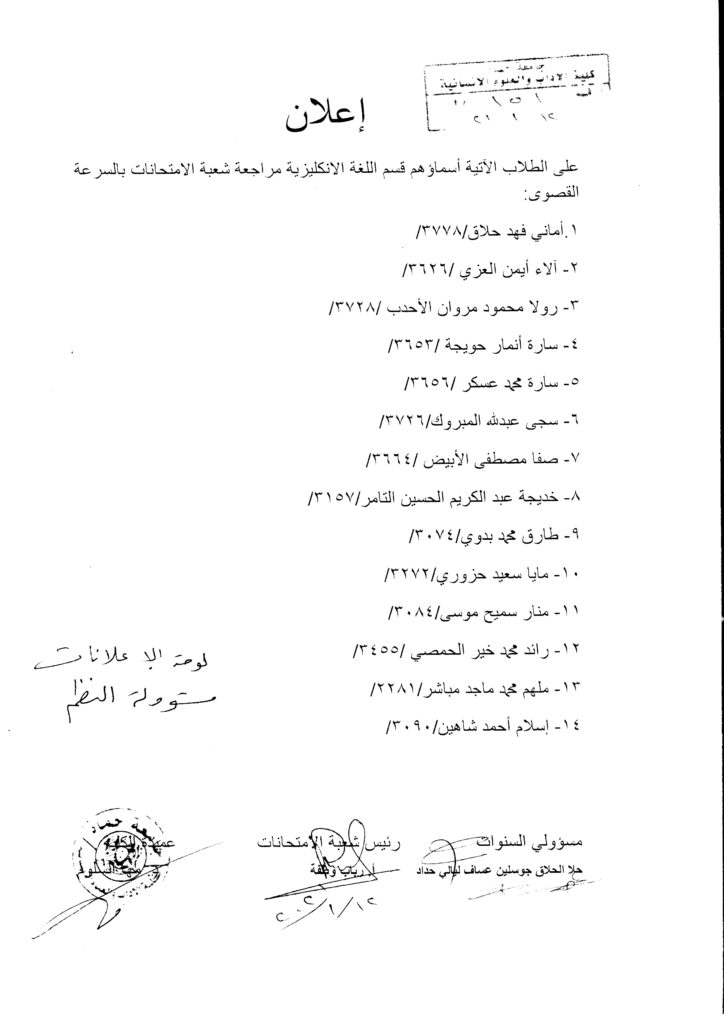 جامعة
كلية الآداب والعلوم الإنسانية
إعلان
على الطلاب الآتية أسماؤهم قسم اللغة الانكليزية مراجعة شعبة الامتحانات بالسرعة
القصوى:
١.أماني فهد حلاق/٣٧٧٨/
٢- آلاء أيمن العزي /٣٦٢٦/
٣- رولا محمود مروان الأحدب /٣٧٢٨/
٤- سارة أنمار حويجة /٣٦٥٣/
٥- سارة محمد عسكر /٣٦٥٦/
٦- سجى عبدلله المبروك/٣٧٢٦/
٧- صفا مصطفى الأبيض /٣٦٦٤/
٨- خديجة عبد الكريم الحسين التامر/٣١٥٧/
٩- طارق محمد بدوي/٣٠٧٤/
١٠- مايا سعيد حزوري/٣٢٧٢/
١١- منار سميح موسى/٣٠٨٤/
١٢- رائد محمد خير الحمصي /٣٤٥٥/
١٣- ملهم محمد ماجد مباشر/٢٢٨١/
١٤- إسلام أحمد شاهين/٣٠٩٠/
لوحة الإعلانات
مسؤولة النظم
مسؤولي السنوات
حلا الحلاق جوسلين عساف ليالي حداد
رئيس شعبة الامتحانات
أ. رباب
عميدة الكلية